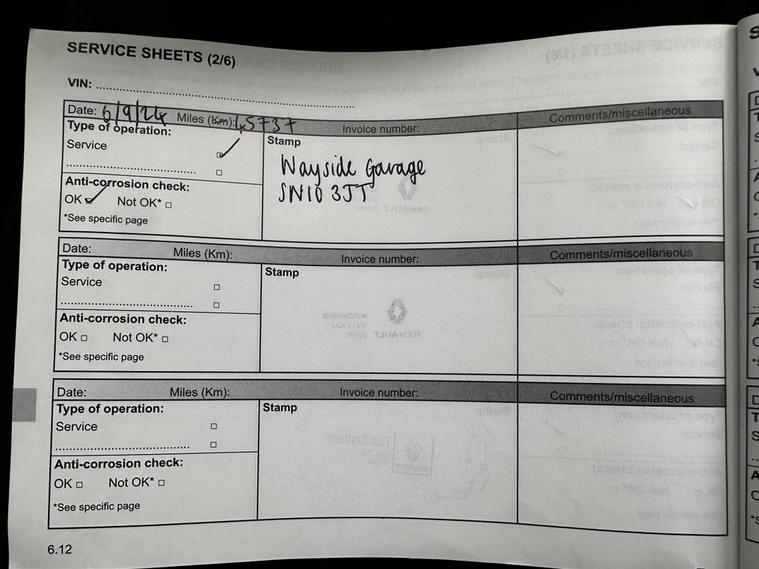 SERVICE SHEETS (2/6)
VIN:
Date: 6/9/24 Miles (Km): 45737 Invoice number: Comments/miscellaneous
Type of operation:
Service
Stamp
Wayside Garage
SN10 3JT
Anti-corrosion check:
OK Not OK*
*See specific page
Date: Miles (Km): Invoice number: Comments/miscellaneous
Type of operation:
Service
Stamp
Anti-corrosion check:
OK Not OK*
*See specific page
Date: Miles (Km): Invoice number: Comments/miscellaneous
Type of operation:
Service
Stamp
Anti-corrosion check:
OK Not OK*
*See specific page
6.12